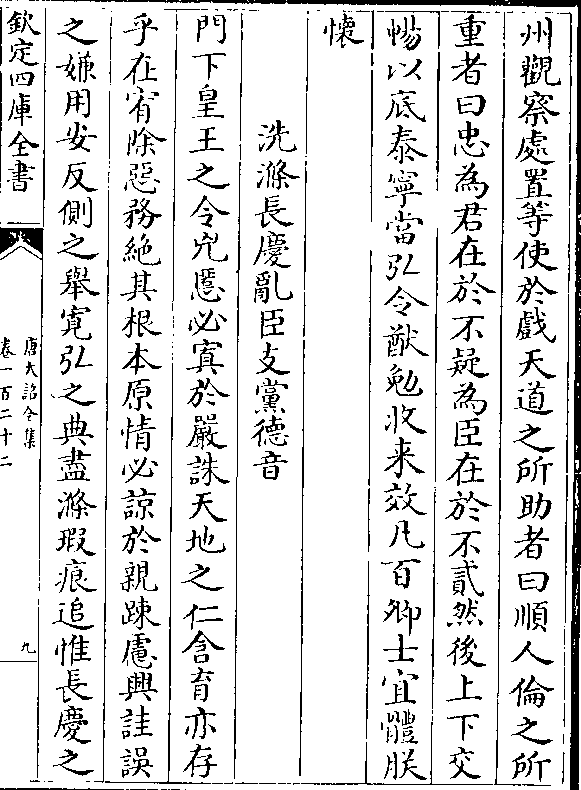 州觀察處置等使於戲天道之所助者曰順人倫之所
重者曰忠為君在於不疑為臣在於不貳然後上下交
暢以底泰寧當弘令猷勉收来效凡百卿士宜體朕
懷
洗滌長慶亂臣支黨德音
門下皇王之令兇慝必寘於嚴誅天地之仁含育亦存
乎在宥除惡務絶其根本原情必諒於親踈慮興詿誤
之嫌用安反側之舉寛弘之典盡滌瑕痕追惟長慶之
欽定四庫全書
唐大詔令集
卷一百二十二
九